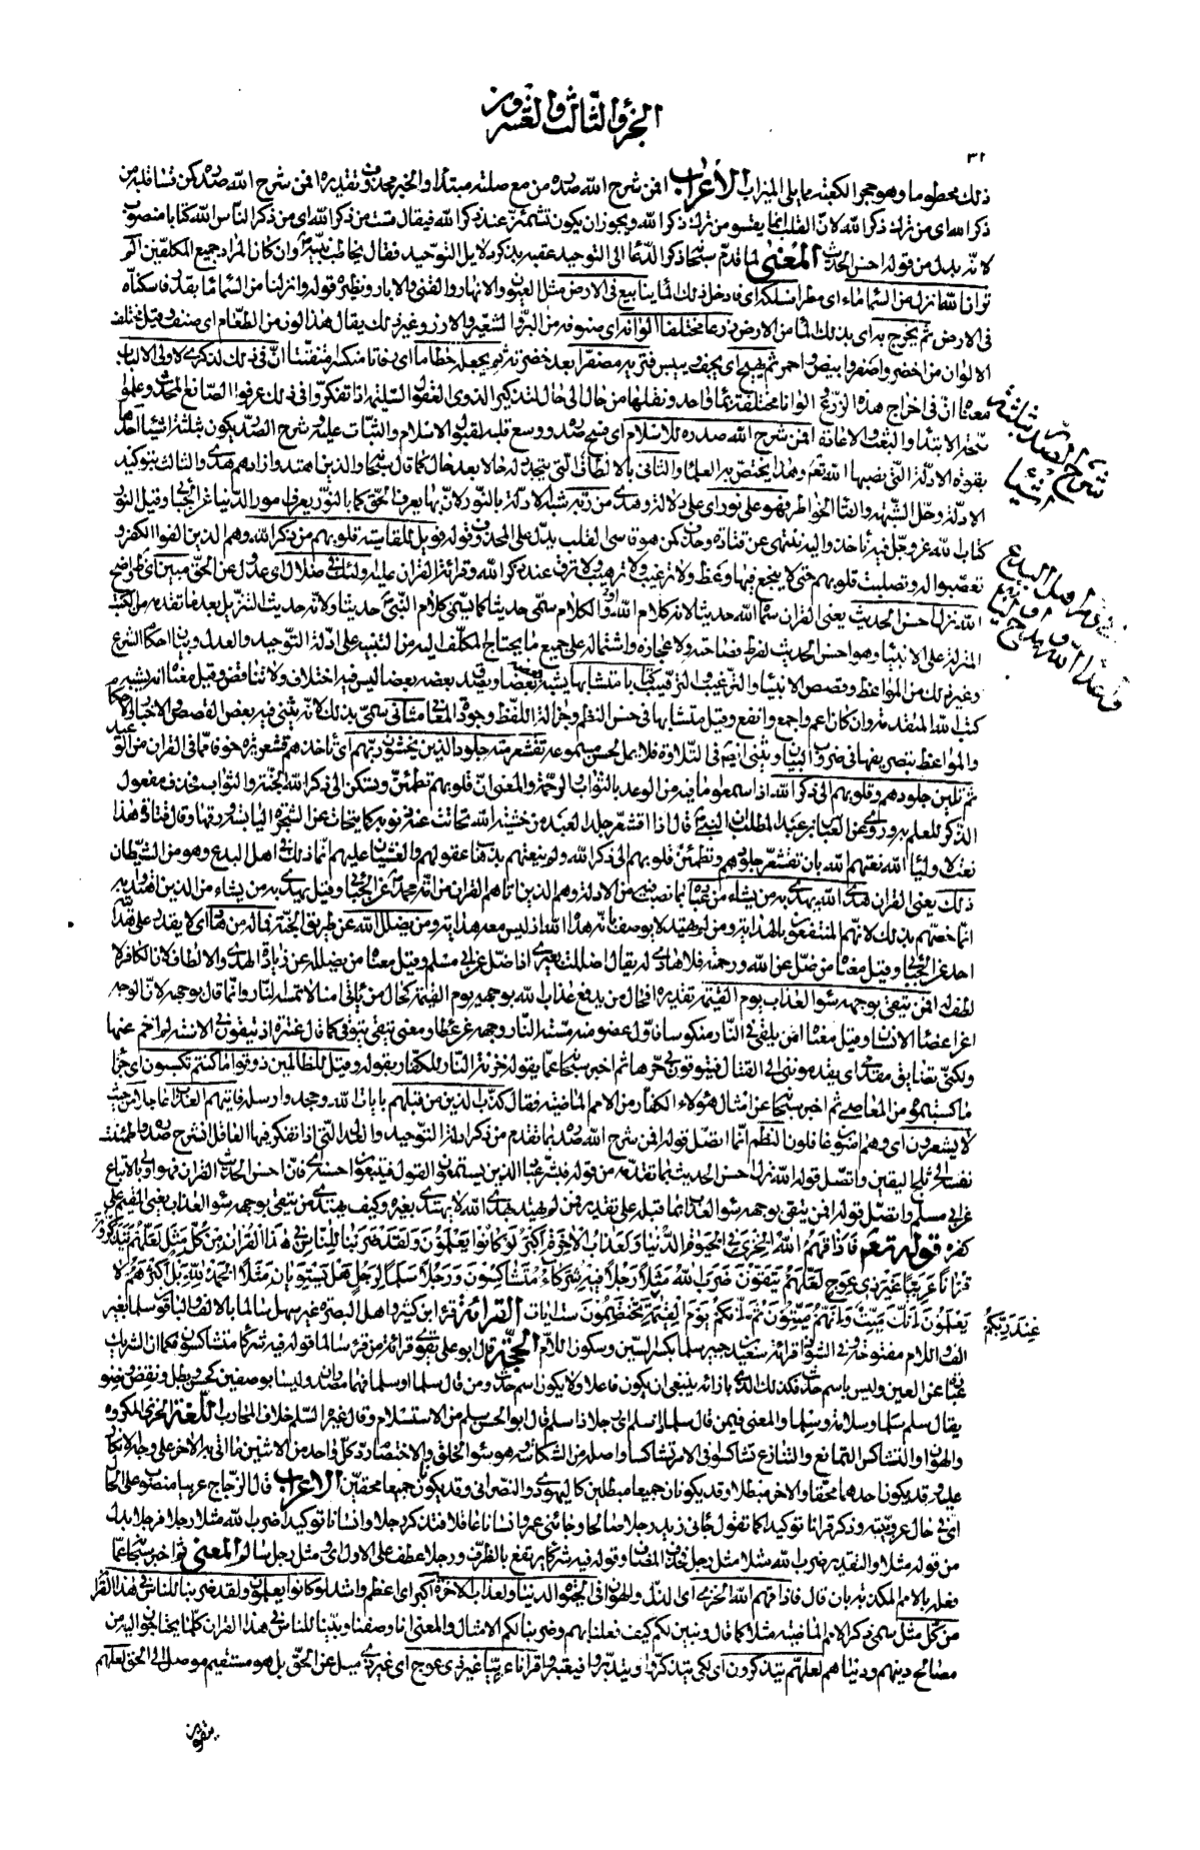 الجزء الثالث والعشرون
٣١
ذلك محطوما وهو حجر الكعبة مما يلى الميزاب الأعراب افمن شرح الله صدره من مع صلته مبتدأ والخبر محذوف وتقديره افمن شرح الله صدره كمن قسا قلبه من
ذكر الله اى من ترك ذكر الله لان القلب انما يقسو من ترك ذكر الله ويجوز ان يكون تشمئز عند ذكر الله فيقال قست من ذكر الله اى من ذكر الناس الله كتابا منصوب
لانه بدل من قوله احسن الحديث المعنى لما قدم سبحانه ذكر الدعاء الى التوحيد عقبه بذكر دلايل التوحيد فقال يخاطب نبيه وان كان المراد جميع المكلفين الم
تر ان الله انزل من السماء ماء اى مطرا فسلكه اى فادخل ذلك الماء ينابيع فى الارض مثل العيون والانهار والقنى والابار ونظيره قوله وانزلنا من السماء ماء بقدر فاسكناه
فى الارض ثم يخرج به اى بذلك الماء من الارض زرعا مختلفا الوانه اى صنوفه من البر والشعير والارز وغير ذلك يقال هذا لون من الطعام اى صنف وقيل مختلف
الالوان من اخضر واصفر وابيض واحمر ثم يهيج اى يجف وييبس فتريه مصفرا بعد خضرته ثم يجعله حطاما اى رفاتا منكسرا متفتتا ان فى ذلك لذكرى لاولى الالباب
معناه ان فى اخراج هذه الزروع الوانا مختلفة بماء واحد ونقلها من حال الى حال لتذكير الذوى العقول السليمة اذا تفكروا فى ذلك عرفوا الصانع المحدث وعلموا
صحة الابتداء والبعث والاعادة افمن شرح الله صدره للاسلام اى فسح صدره ووسع قلبه لقبول الاسلام والثبات عليه وشرح الصدر يكون بثلثة اشياء احدها
بقوة الادلة التى نصبها الله تعم وهذا يختص به العلماء والثانى بالالطاف التى تتجدد له حالا بعد حال كما قال سبحانه والذين اهتدوا زادهم هدى والثالث بتوكيد
الادلة وحل الشبهة والقاء الخواطر فهو على نور اى على دلالة وهدى من ربه شبه الادلة بالنور لان بها يعرف الحق كما بالنور يعرف امور الدنيا عن الجبائى وقيل النور
كتاب الله عز وجل فبه نأخذ واليه ننتهى عن قتادة وحذف كمن هو قاسى القلب يدل على المحذوف قوله فويل للقاسية قلوبهم من ذكر الله وهم الذين الفوا الكفر و
تعصبوا له وتصلبت قلوبهم حتى لا ينجع فيها وعظ ولا ترغيب ولا ترهيب ولا ترق عند ذكر الله وقرائة القران عليه اولئك فى ضلال اى عدول عن الحق مبين اى ظ واضح
الله نزل احسن الحديث يعنى القران سماه الله حديثا لانه كلام الله والكلام سمى حديثا كما يسمى كلام النبى حديثا ولانه حديث التنزيل بعد ما تقدمه من الكتب
المنزلة على الانبياء وهو احسن الحديث لفرط فصاحته ولاعجازه واشتماله على جميع ما يحتاج المكلف اليه من التنبيه على ادلة التوحيد والعدل وبيان احكام الشرع
وغير ذلك من المواعظ وقصص الانبياء والترغيب والترهيب كتابا متشابها يشبه بعضه بعضا ويصدق بعضه بعضا ليس فيه اختلاف ولا تناقض وقيل معناه انه يشبه
كتب الله المتقدمة وان كان اعم واجمع وانفع وقيل متشابها فى حسن النظم وجزالة اللفظ وجودة المعانى مثانى سمى بذلك لانه يثنى فيه بعض القصص والاخبار والاحكام
والمواعظ بتصريفها فى ضروب البيان ويثنى ايضا فى التلاوة فلا يمل لحسن مسموعه تقشعر منه جلود الذين يخشون ربهم اى تأخذهم قشعريرة خوفا مما فى القران من الوعيد
ثم تلين جلودهم وقلوبهم الى ذكر الله اذا سمعوا ما فيه من الوعد بالثواب والرحمة والمعنى ان قلوبهم تطمئن وتسكن الى ذكر الله الجنة والثواب فحذف مفعول
الذكر للعلم به وروى عن العباس بن عبد المطلب ان النبى قال اذا اقشعر جلد العبد من خشية الله تحاتت عنه ذنوبه كما يتحات عن الشجرة اليابسة ورقها وقال قتادة هذا
نعت لاولياء الله نعتهم الله بان تقشعر جلودهم وتطمئن قلوبهم الى ذكر الله ولم ينعتهم بذهاب عقولهم والغشيان عليهم انما ذلك فى اهل البدع وهو من الشيطان
ذلك يعنى القران هدى الله يهدى به من يشاء من عباده بما نصب فيه من الادلة وهم الذين اتاهم القران من امة محمد عن الجبائى وقيل يهدى به من يشاء من الذين اهتدوا به
انما خصهم بذلك لانهم المنتفعون بالهداية ومن لم يهتد لا يوصف بانه هداه الله اذ ليس معه هداية ومن يضلل الله عن طريق الجنة فما له من هاد اى لا يقدر على هدايته
احد عن الجبائى وقيل معناه من ضل عن الله ورحمته فلا هادى له يقال اضللت بعيرى اذا ضل عن ابى مسلم وقيل معناه من يضلله عن زيادة الهدى والالطاف لان الكافر لا
لطف له افمن يتقى بوجهه سوء العذاب يوم القيمة تقديره افحال من يدفع عذاب الله بوجهه يوم القيمة كحال من يأتى امنا لا تمسه النار وانما قال بوجهه لان الوجه
اعز اعضاء الانسان وقيل معناه امن يلقى فى النار منكوسا فاول عضو منه مسته النار وجهه عن عطا ومعنى يتقى يتوقى كما قال عنترة اذ يتقون بى الاسنة لم اخم عنها
ولكنى تضايق مقدمى اى يقدموننى الى القتال فيتوقون بى حرها ثم اخبر سبحانه عما يقوله خزنة النار للكفار بقوله وقيل للظالمين ذوقوا ما كنتم تكسبون اى جزاء
ما كسبتموه من المعاصى ثم اخبر سبحانه عن امثال هؤلاء الكفار من الامم الماضية فقال كذب الذين من قبلهم بايات الله وجحدوا رسله فاتيهم العذاب عاجلا من حيث
لا يشعرون اى وهم امنون غافلون النظم انما اتصل قوله افمن شرح الله صدره بما تقدم من ذكر ادلة التوحيد والعدل التى اذا تفكر فيها العاقل انشرح صدره واطمأنت
نفسه الى ثلج اليقين واتصل قوله الله نزل احسن الحديث بما تقدمه من قوله فبشر عباد الذين يستمعون القول فيتبعون احسنه فان احسن الحديث القران فهو اولى بالاتباع
عن ابى مسلم واتصل قوله افمن يتقى بوجهه سوء العذاب بما قبله على تقدير فمن لم يهتد بهدى الله لا يهتدى بغيره وكيف يهتدى من يتقى بوجهه سوء العذاب يعنى المقيم على
كفره قوله تعم فَأَذَاقَهُمُ اللهُ الْخِزْيَ فِي الْحَيٰوةِ الدُّنْيَا وَلَعَذَابُ الْاٰخِرَةِ اَكْبَرُ لَوْ كَانُوا يَعْلَمُونَ وَلَقَدْ ضَرَبْنَا لِلنَّاسِ فِي هٰذَا الْقُرْاٰنِ مِنْ كُلِّ مَثَلٍ لَعَلَّهُمْ يَتَذَكَّرُونَ
قُرْاٰنًا عَرَبِيًّا غَيْرَ ذِي عِوَجٍ لَعَلَّهُمْ يَتَّقُونَ ضَرَبَ اللهُ مَثَلًا رَجُلًا فِيهِ شُرَكَاءُ مُتَشَاكِسُونَ وَرَجُلًا سَلَمًا لِرَجُلٍ هَلْ يَسْتَوِيَانِ مَثَلًا الْحَمْدُ لِلّٰهِ بَلْ اَكْثَرُهُمْ لَا
يَعْلَمُونَ اِنَّكَ مَيِّتٌ وَاِنَّهُمْ مَيِّتُونَ ثُمَّ اِنَّكُمْ يَوْمَ الْقِيٰمَةِ تَخْتَصِمُونَ ست ايات القرائة قرء ابن كثير واهل البصرة غير سهل سالما بالالف والباقون سلما بغير
عِنْدَ رَبِّكُمْ
الف واللام مفتوحة وفى الشواذ قرائة سعيد بن جبير سلما بكسر السين وسكون اللام الحجة قال ابو على يقوى قرائة من قرء سالما قوله فيه شركاء متشاكسون فكما ان الشريك
عبارة عن العين وليس باسم حدث فكذلك الذى بازائه ينبغى ان يكون فاعلا ولا يكون اسم حدث ومن قال سلما وسلما فهما مصدران وليسا بوصفين كحسن وبطل ونقض ونضو
يقال سلم سلما وسلامة وسلما والمعنى فيمن قال سلما ذا سلم اى رجلا ذا سلم قال ابو الحسن سلم من الاستسلام وقال غيره السلم خلاف المحارب اللغة الخزى المكروه
والهوان والتشاكس التمانع والتنازع تشاكسوا فى الامر تشاكسا واصله من الشكاسة وهو سوء الخلق والاختصام رد كل واحد من الاثنين ما اتى به الاخر على وجه الانكار
عليه وقد يكون احدهما محقا والاخر مبطلا وقد يكونان جميعا مبطلين كاليهودى والنصرانى وقد يكونان جميعا محقين الاعراب قال الزجاج عربيا منصوب على الحال
اى فى حال عربيته وذكر قرانا توكيدا كما تقول جائنى زيد رجلا صالحا وجائنى عمرو انسانا عاقلا فتذكر رجلا وانسانا توكيدا ضرب الله مثلا رجلا فرجلا بدل
من قوله مثلا والتقدير ضرب الله مثلا مثل رجل فحذف المضاف وقوله فيه شركاء يرتفع بالظرف ورجلا عطف على الاول اى ومثل رجل سالم المعنى ثم اخبر سبحانه عما
فعله بالامم المكذبة بان قال فاذاقهم الله الخزى اى الذل والهوان فى الحيوة الدنيا ولعذاب الاخرة اكبر اى اعظم واشد لو كانوا يعلمون ولقد ضربنا للناس فى هذا القران
من كل مثل سمى ذكر الامم الماضية مثلا كما قال وتبين لكم كيف فعلنا بهم وضربنا لكم الامثال والمعنى انا وصفنا وبينا للناس فى هذا القران كلما يحتاجون اليه من
مصالح دينهم ودنياهم لعلهم يتذكرون اى لكى يتذكروا ويتدبروا فيعتبروا قرانا عربيا غير ذى عوج اى غير ذى ميل عن الحق بل هو مستقيم موصل الى الحق لعلهم
يتقون
شرح الصدر بثلثة
اشياء